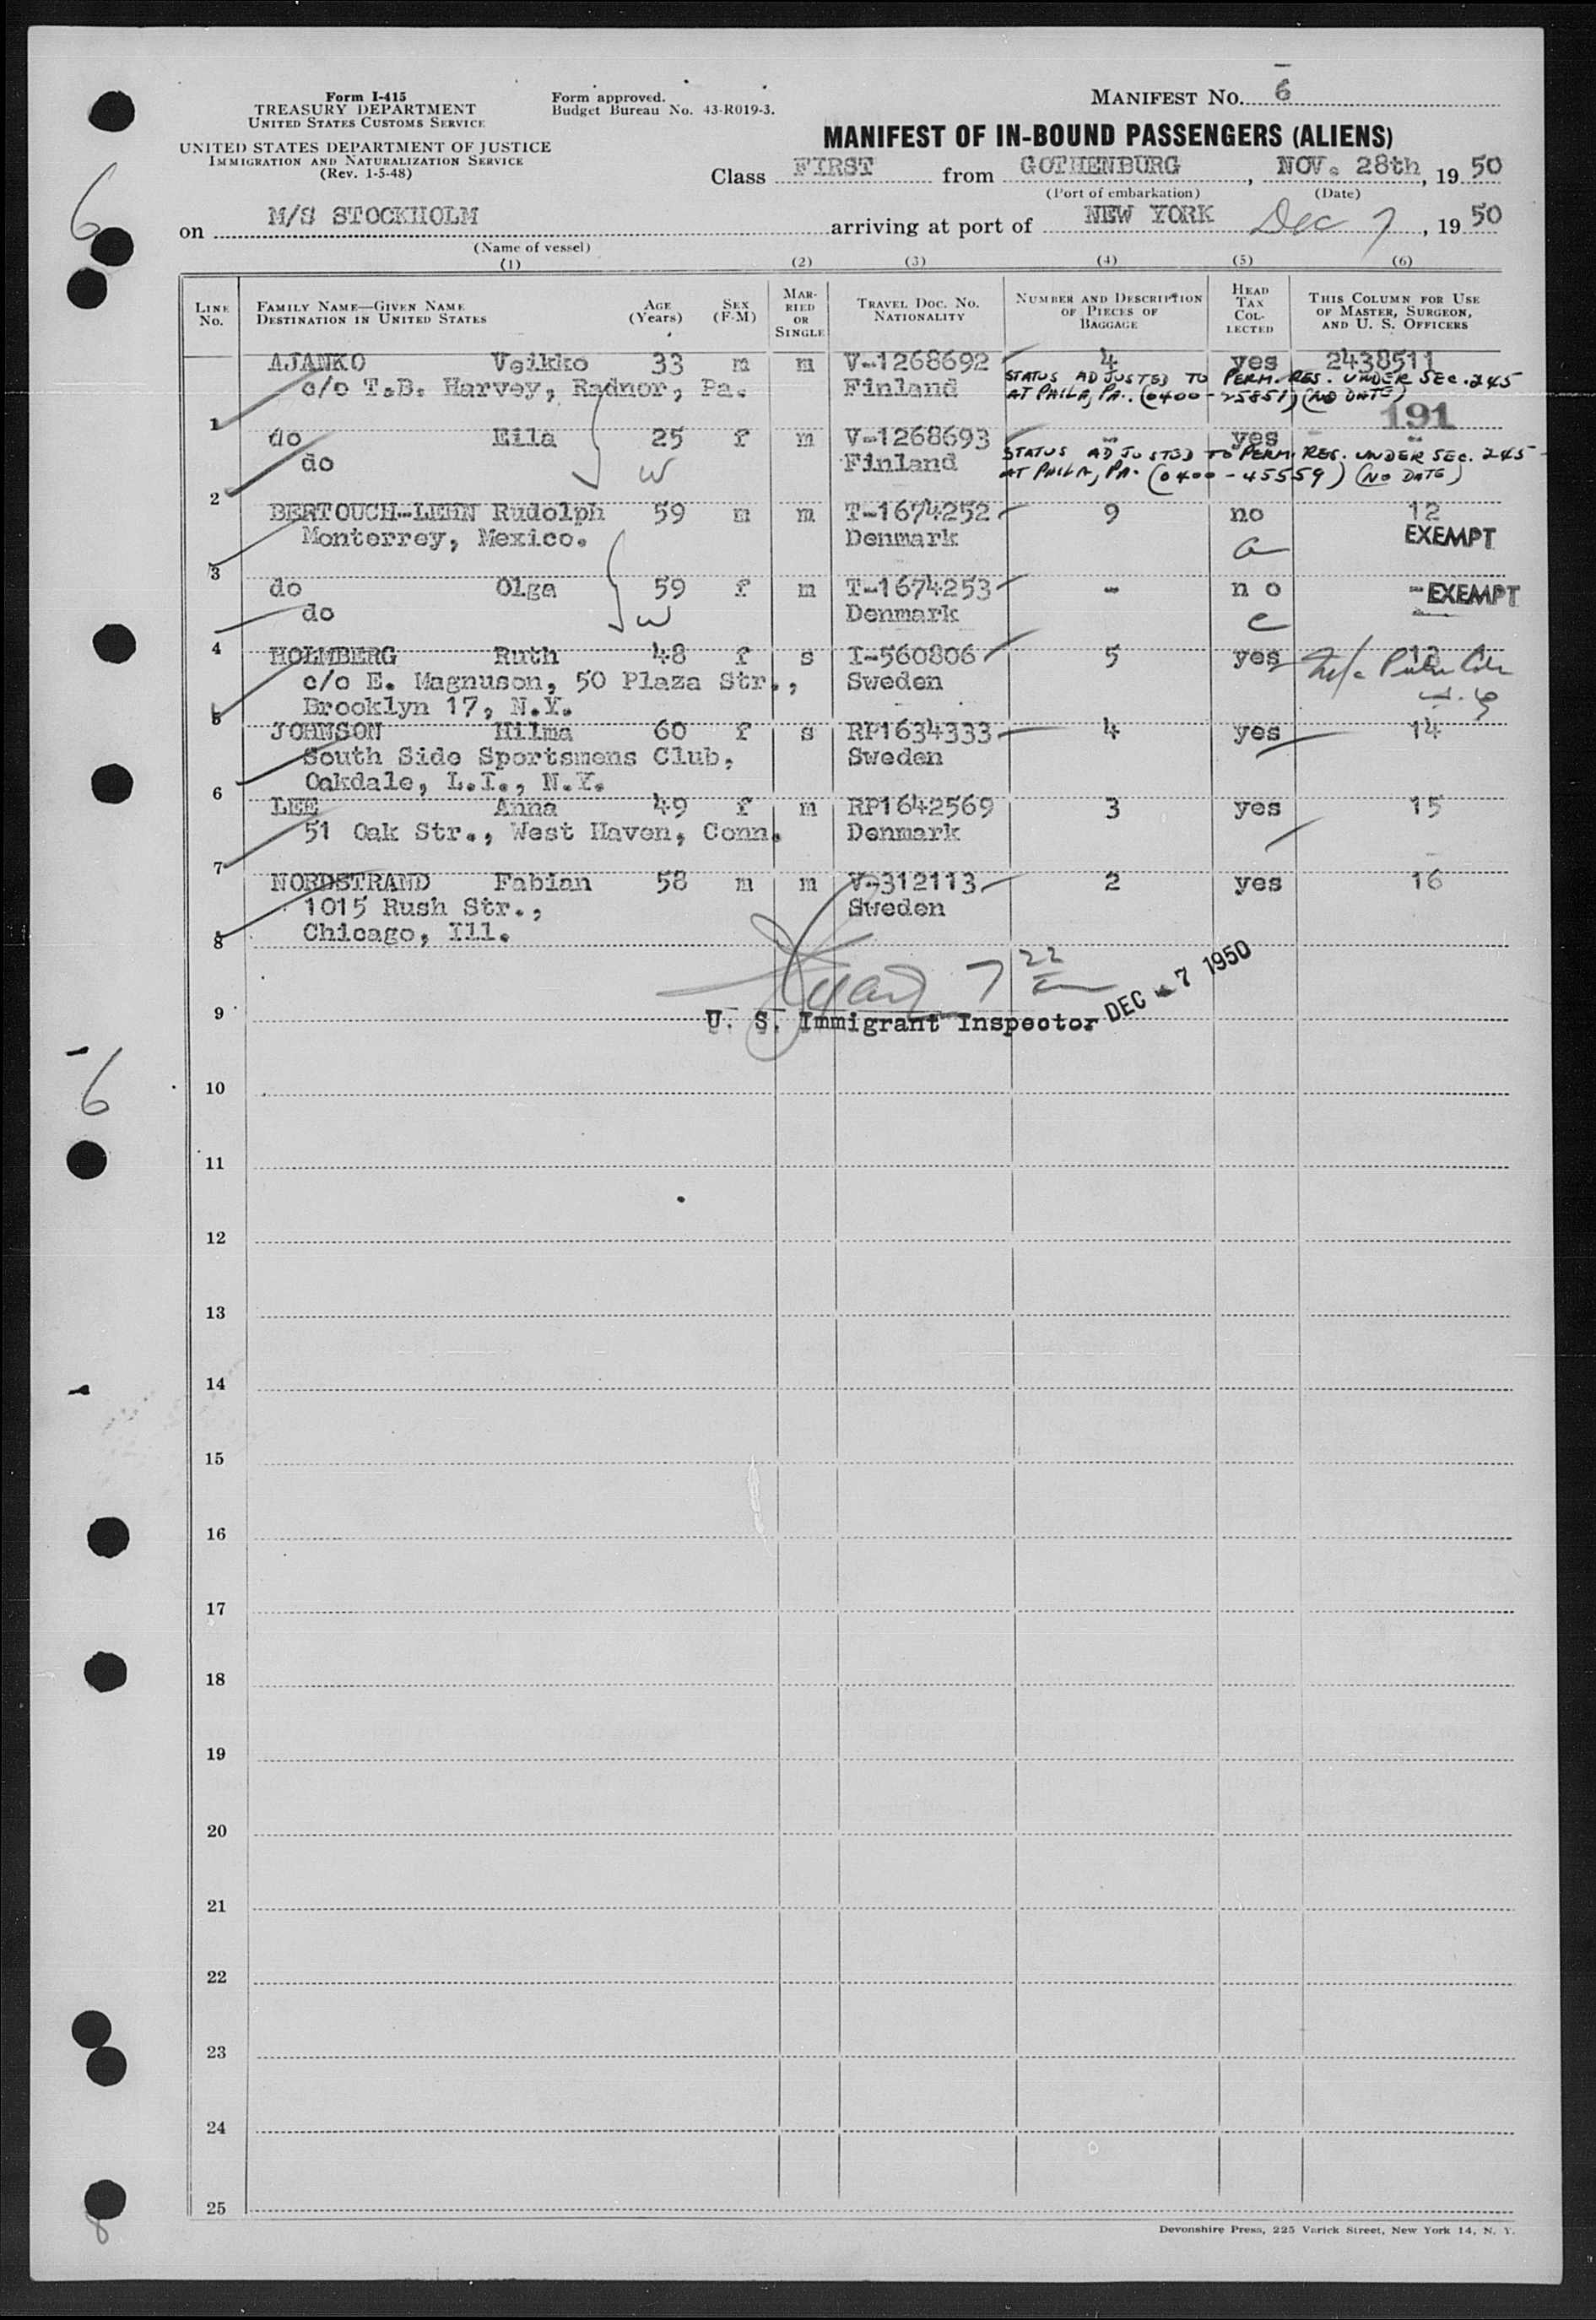 Form I-415
TREASURY DEPARTMENT
UNITED STATES CUSTOMS SERVICE
UNITED STATES DEPARTMENT OF JUSTICE
IMMIGRATION AND NATURALIZATION SERVICE
(Rev. 1-5-48)
Form approved.
Budget Bureau No. 43-R019-3.
MANIFEST NO. 6
MANIFEST OF IN-BOUND PASSENGERS (ALIENS)
Class FIRST from GOTHENBURG, NOV. 28th, 19 50
(Port of embarkation) (Date)
on M/S STOCKHOLM arriving at port of NEW YORK Dec 7, 19 50
(Name of vessel)
6
(1) (2) (3) (4) (5) (6)
LINE NO. FAMILY NAME—GIVEN NAME DESTINATION IN UNITED STATES AGE (Years) SEX (F-M) MARRIED OR SINGLE TRAVEL DOC. NO. NATIONALITY NUMBER AND DESCRIPTION OF PIECES OF BAGGAGE HEAD TAX COLLECTED THIS COLUMN FOR USE OF MASTER, SURGEON, AND U. S. OFFICERS
AJANKO Veikko 33 m m V-1268692 4 yes 2438511
c/o T.B. Harvey, Radnor, Pa. Finland STATUS ADJUSTED TO PERM. RES. UNDER SEC. 245
AT PHILA, PA. (0400-25851) (NO DATE)
191
1
do Eila 25 f m V-1268693 - yes -
do W Finland STATUS ADJUSTED TO PERM. RES. UNDER SEC. 245
AT PHILA, PA. (0400-45559) (NO DATE)
2
BERTOUCH-LEHN Rudolph 59 m m T-1674252 9 no 12
Monterrey, Mexico. Denmark a EXEMPT
3
do Olga 59 f m T-1674253 - no - EXEMPT
do W Denmark
4
HOLMBERG Ruth 48 f s I-560806 5 yes 13
c/o E. Magnuson, 50 Plaza Str., Sweden
Brooklyn 17, N.Y.
5
JOHNSON Hilma 60 f s RP1634333 4 yes 14
South Side Sportsmens Club, Sweden
Oakdale, L.I., N.Y.
6
LEE Anna 49 f m RP1642569 3 yes 15
51 Oak Str., West Haven, Conn. Denmark
7
NORDSTRAND Fabian 58 m m V-312113 2 yes 16
1015 Rush Str., Sweden
Chicago, Ill.
8
7 22
DEC - 7 1950
U. S. Immigrant Inspector
9
6
10
11
12
13
14
15
16
17
18
19
20
21
22
23
24
25
8
Devonshire Press, 225 Varick Street, New York 14, N. Y.